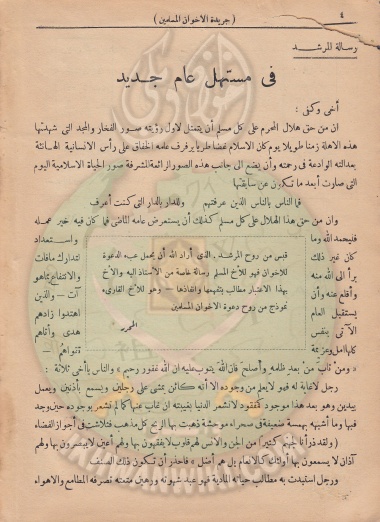 ٤
( جريدة الاخوان المسلمين )
رسالة المرشد
فى مستهل عام جديد
أخى وكنى :
ان من حق هلال المحرم على كل مسلم أن يتمثل لاول رؤيته صور الفخار والمجد التى شهدتها
هذه الاهلة زمنا طويلا يوم كان الاسلام غضا طريا يرفرف عامه الخفاق على رأس الانسانية الهانئة
بعدالته الوادعة فى رحمته وان يضم الى جانب هذه الصور الرائعة المشرفة صور الحياة الاسلامية اليوم
التى صارت أبعد ما تكون عن سابقتها
فما الناس بالناس الذين عرفتهم ولا الدار بالدار التى كنت أعرف
وان من حق هذا الهلال على كل مسلم كذلك أن يستعرض عامه الماضى فما كان فيه خير عمله
فليحمد الله وما
كان غير ذلك
برأ الى الله منه
وأقلع عنه وأن
يستقبل العام
الآتى بنفس
كلها أمل وعزيمة
واستعداد
لتدارك مافات
والانتفاع بماهو
آت – والذين
اهتدوا زادهم
هدى وآتاهم
تقواهم –
قبس من روح المرشد . الذى أراد الله أن يحمل عبء الدعوة
للاخوان فهو للأخ المسلم رسالة خاصة من الاستاذ اليه والاخ
بهذا الاعتبار مطالب بتفهمها وانفاذها – وهو للأخ القارىء
نموذج من روح دعوة الاخوان المسلمين
المحرر
« ومن تاب من بعد ظلمه وأصلح فان الله يتوب عليه ان الله غفور رحيم » والناس يا أخى ثلاثة :
رجل لا غاية له فهو لا يعلم من وجوده الا أنه كائن يمشى على رجلين ويسمع بأذنين ويعمل
بيدين وهو بعد هذا موجود كمفقود لا تشعر الدنيا بغيبته ان غاب عنها كما لم تشعر بوجوده حين وجد
فيها وما أشبهه بهمسة ضعيفة فى صحراء موحشة ذهبت بها الريح كل مذهب فتلاشت فى أجواز الفضاء
( ولقد ذرأنا لجهنم كثيرا من الجن والانس لهم قلوب لا يفقهون بها ولهم أعين لا يبصرون بها ولهم
آذان لا يسمعون بها أولئك كالانعام بل هم أضل » فاحذر أن تكون ذلك الصنف
ورجل استبدت به مطالب حياته المادية فهو عبد شهوته ورهين متعته تصرفه المطامع والاهواء